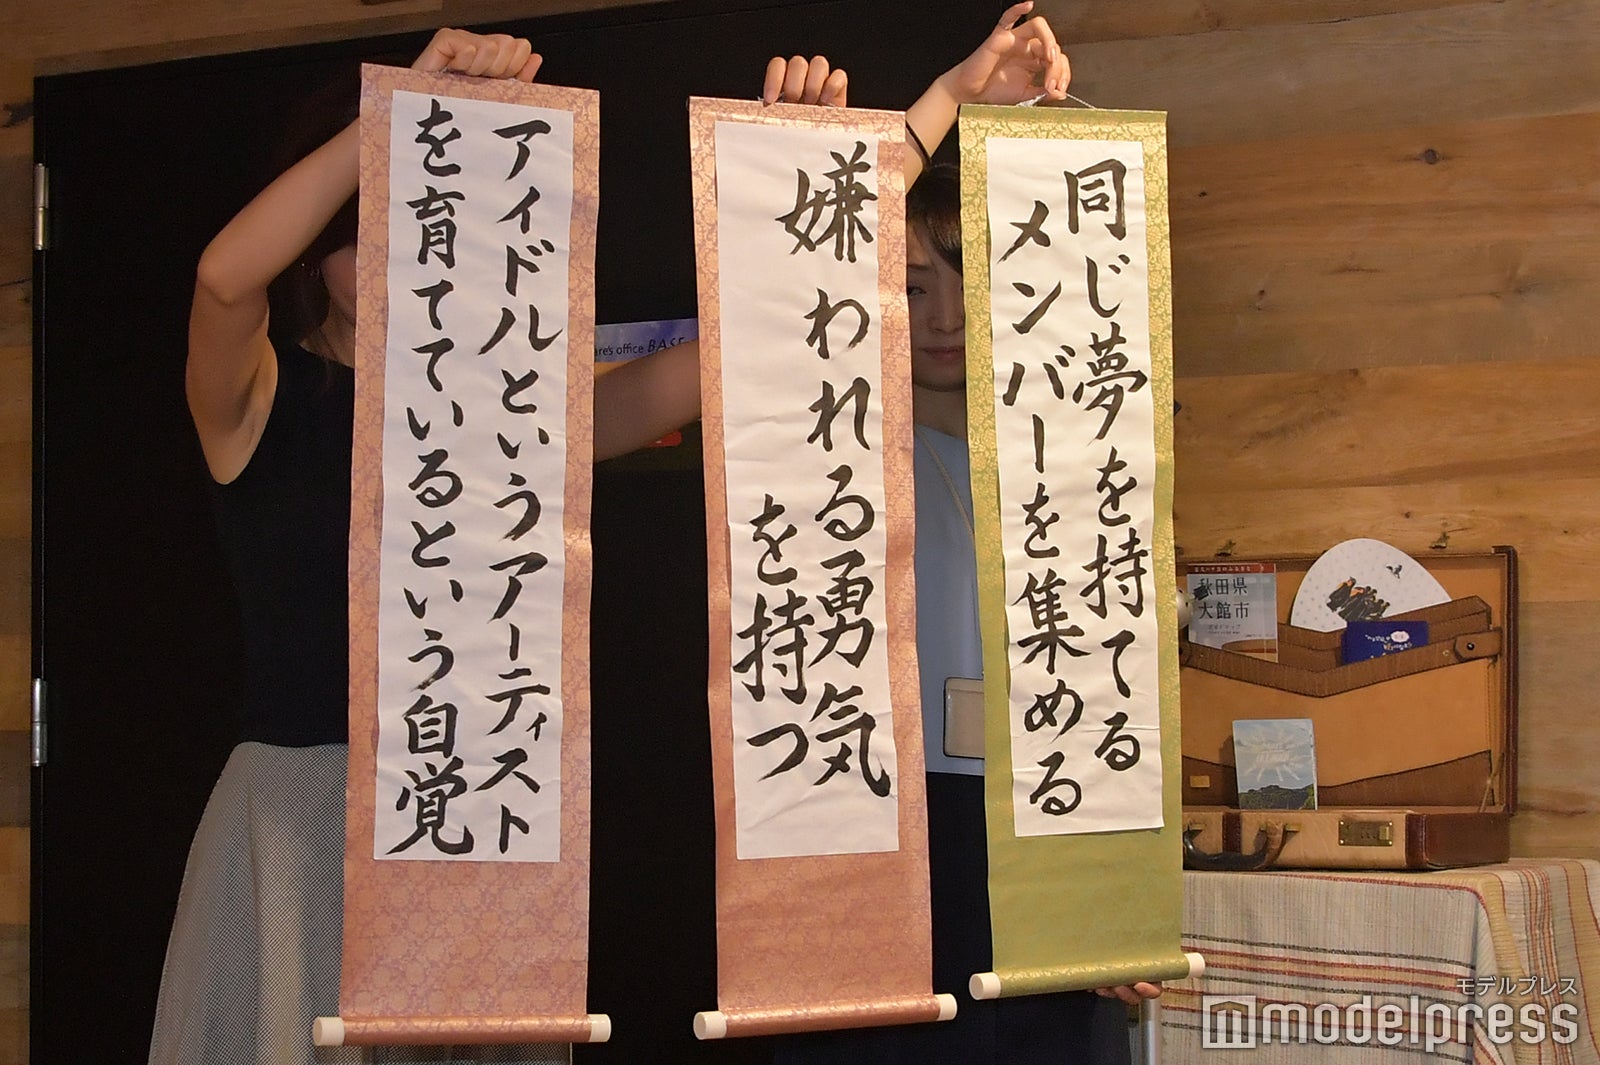 同じ夢を持てる
メンバーを集める
嫌われる勇気
を持つ
アイドルというアーティスト
を育てているという自覚
are's office BASE
秋田県
大館市
モデルプレス
modelpress